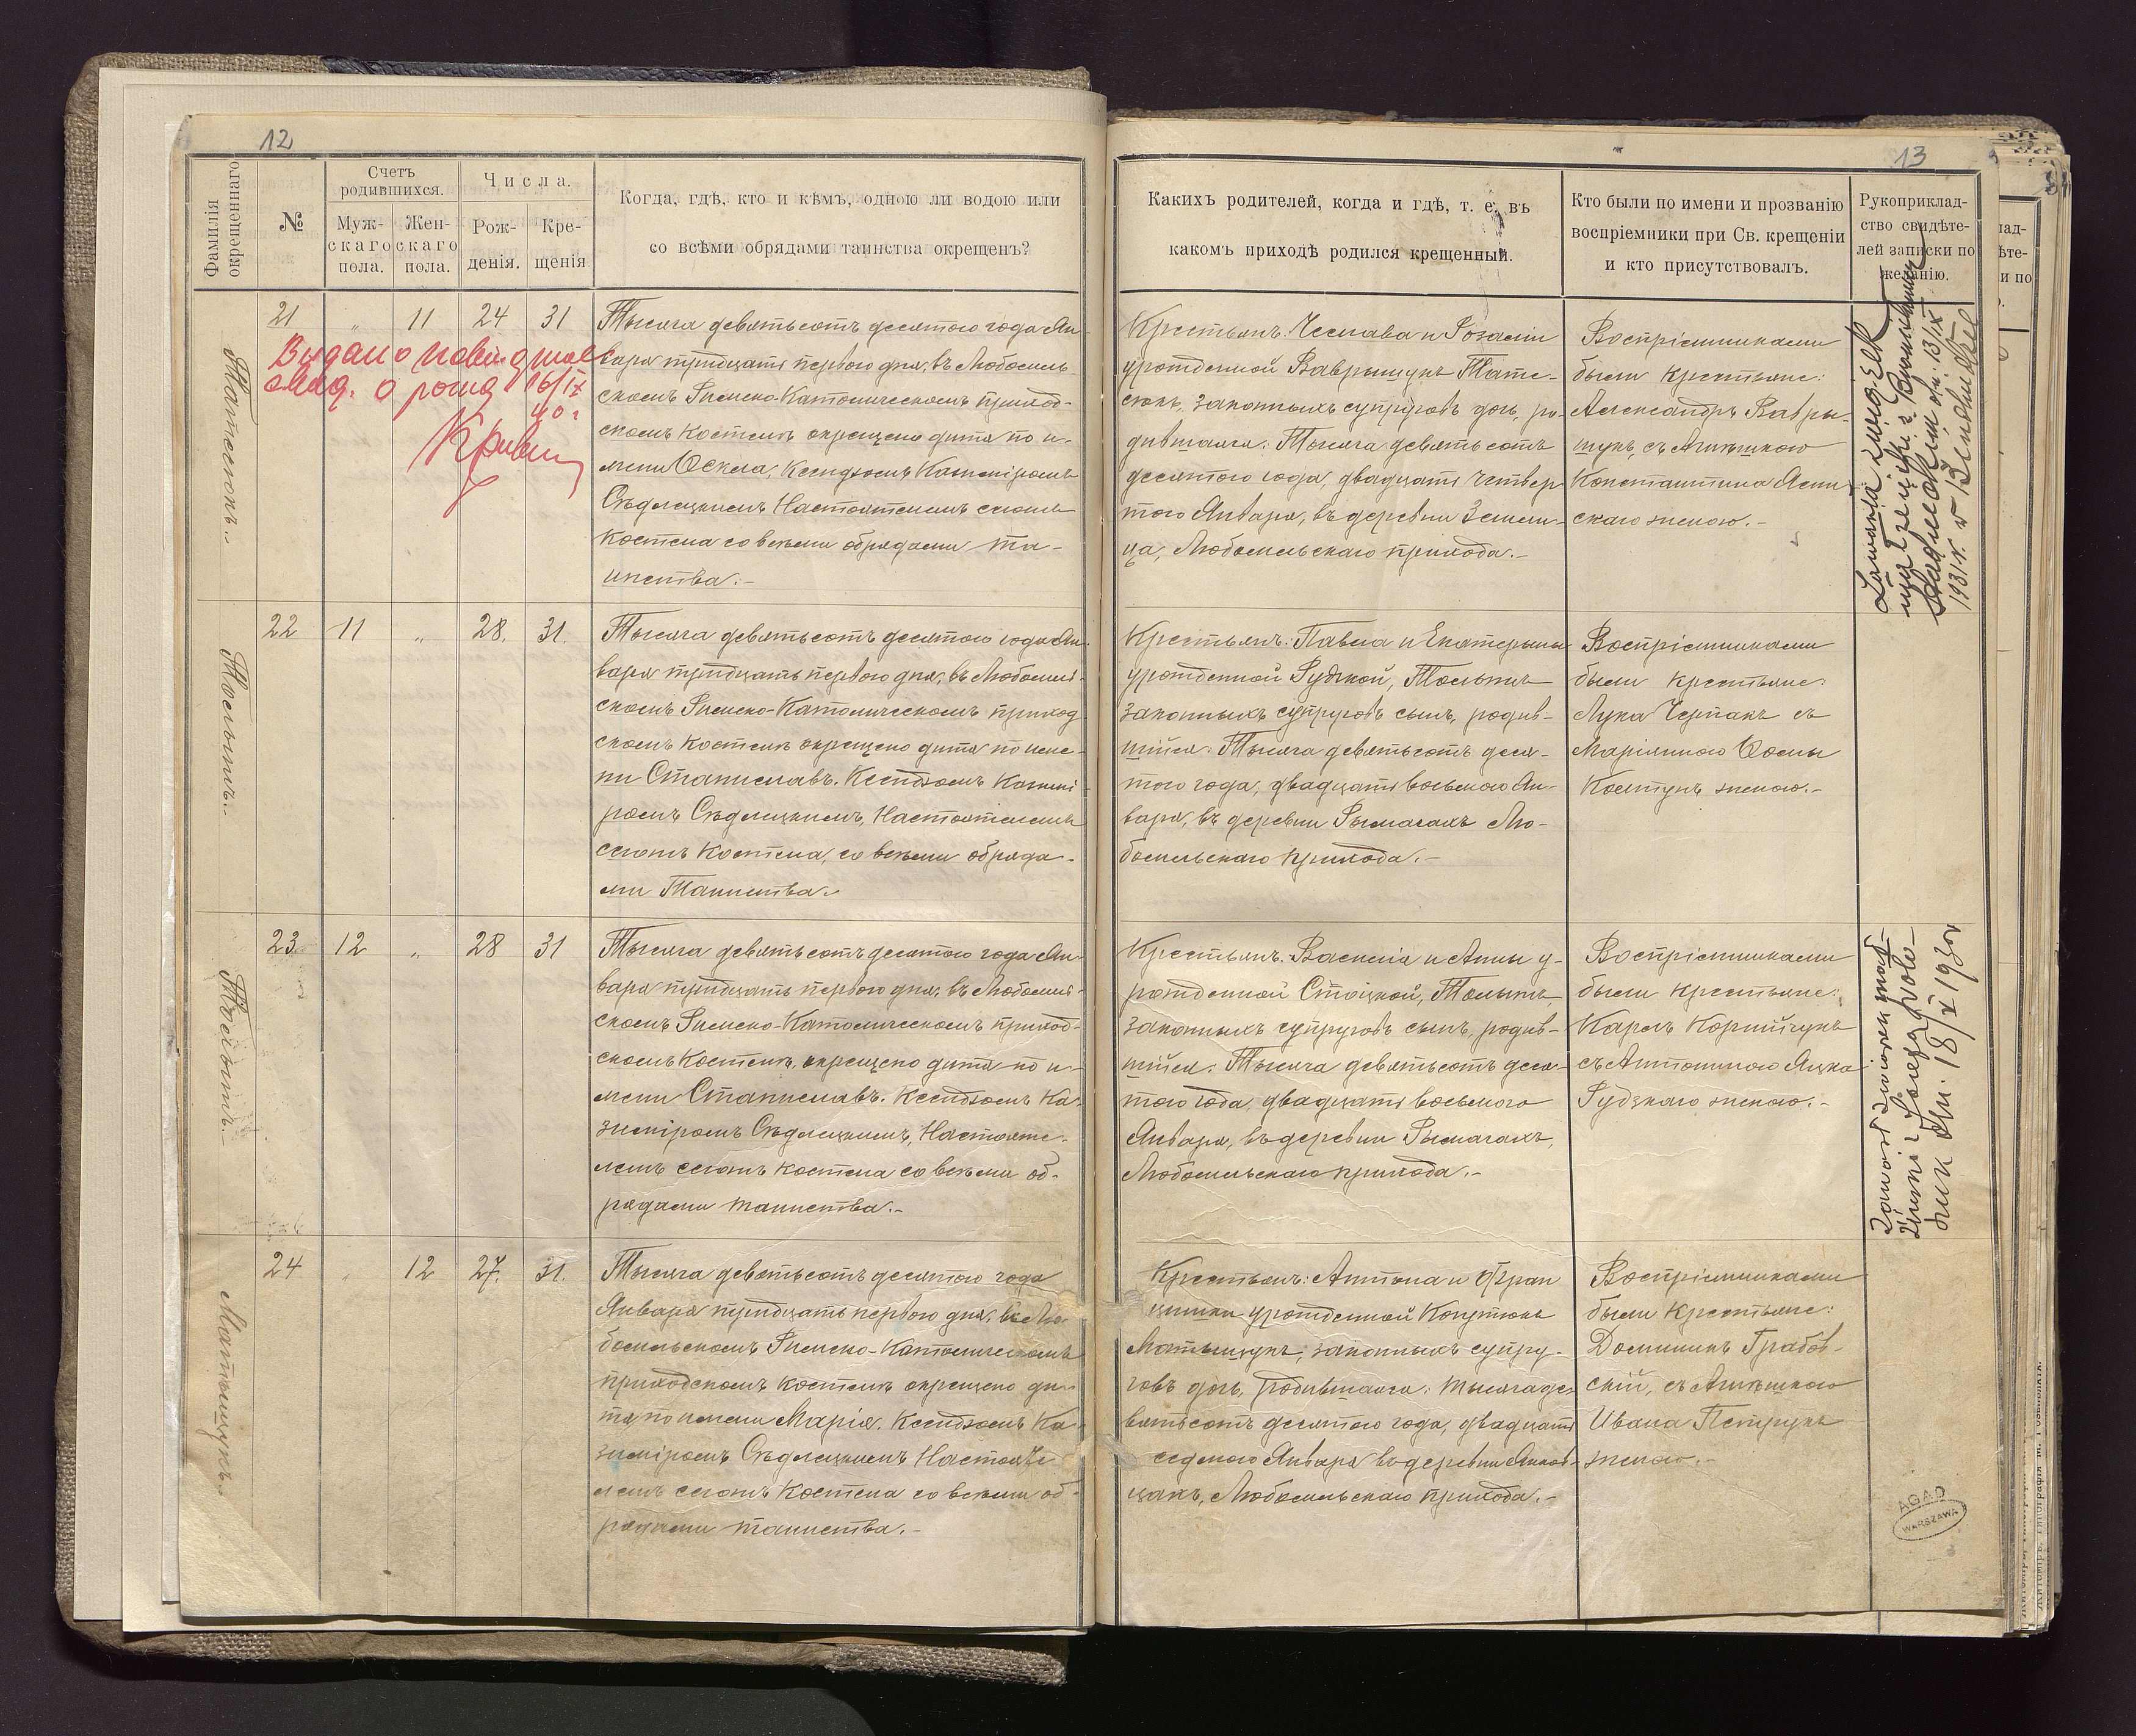 12
Фамилія окрещеннаго
№
Счетъ родившихся.
Муж-
скаго
пола.
Жен-
скаго
пола.
Числа.
Рож-
денія.
Кре-
щенія
Когда, гдѣ, кто и кѣмъ, одною ли водою или
со всѣми обрядами таинства окрещенъ?
21 „ 11 24 31
Тысяча девятьсотъ десятого года Ян-
варя тридцать первого дня, въ Любомль-
скомъ Римско-Католическомъ приход-
скомъ костелѣ окрещено дитя по и-
мени Ѳекла, Ксендзомъ Казиміромъ
Сѣдлецкимъ Настоятелемъ сего
костела со всѣми обрядами та-
инства.-
22 11 „ 28. 31.
Тысяча девятьсотъ десятого года Ян-
варя тридцать первого дня, въ Любомль-
скомъ Римско-Католическомъ приход
скомъ костелѣ окрещено дитя по име-
ни Станиславъ. Ксендзомъ Казимі-
ромъ Сѣдлецкимъ, Настоятелемъ
сего костела, со всѣми обряда-
ми Таинства.-
Тольпил.-
23 12 „ 28 31
Тысяча девятьсотъ десятого года Ян-
варя тридцать первого дня, въ Любомль-
скомъ Римско-Католическомъ приход-
скомъ костелѣ, окрещено дитя по и-
мени Станиславъ. Ксендзомъ Ка-
зиміромъ Сѣдлецкимъ, Настояте-
лемъ сего костела со всѣми об-
рядами таинства.-
24 „ 12 27. 31.
Тысяча девятьсотъ десятого года
Января тридцать первого дня, въ Лю-
бомльскомъ Римско-Католическомъ
приходскомъ костелѣ окрещено ди-
тя по имени Марія. Ксендзомъ Ка-
зиміромъ Сѣдлецкимъ Настояте-
лемъ сего костела со всѣми об-
рядами таинства.-
Матыщукъ.
Видано
о рожд 16/IX
40 г
13
Какихъ родителей, когда и гдѣ, т. е. въ
какомъ приходѣ родился крещенный.
Кто были по имени и прозванію
воспріемники при Св. крещеніи
и кто присутствовалъ.
Рукоприклад-
ство свидѣте-
лей записки по
желанію.
Крестьянъ: Чеслава и Розаліи
урожденной Ваврыщукъ Тата-
сюкъ, законныхъ супруговъ дочь, ро-
дившаяся: Тысяча девятьсотъ
десятого года, двадцать четвер-
того Января, въ деревни Земли-
ца, Любомльскаго прихода.-
Воспріемниками
были крестьяне:
Александръ Вавры-
щукъ, съ Агнѣшкою
Константина
скаго женою.-
Крестьянъ: Павла и Екатерины
урожденной Рудзкой,
законныхъ супруговъ сынъ, родив-
шійся: Тысяча девятьсотъ деся-
того года, двадцать восьмого Ян-
варя, въ деревни Рымачахъ Лю-
бомльскаго прихода.-
Воспріемниками
были крестьяне:
Лука Черпакъ съ
Маріянною Ѳомы
Ковтунъ женою.-
Крестьянъ: Василія и Анны у-
рожденной Стоцкой,
законныхъ супруговъ сынъ, родив-
шійся: Тысяча девятьсотъ деся-
того года, двадцать восьмого
Января, въ деревни Рымачахъ,
Любомльскаго прихода.-
Воспріемниками
были крестьяне:
Кароль Корнійчукъ
съ Антониною Яцка
Рудзкаго женою.-
Крестьянъ: Антона и Фран
цишки урожденной
Матыщукъ, законныхъ супру-
говъ дочь, родившаяся: Тысяча де-
вятьсотъ десятого года, двадцать
седьмого Января въ деревни Янков-
цахъ, Любомльскаго прихода.-
Воспріемниками
были крестьяне:
Доминикъ Грабов-
скій, съ Агнѣшкою
Ивана Петрукъ
женою.-
13/IX
1931 r. w
18/XI 1930r
AGAD
WARSZAWA